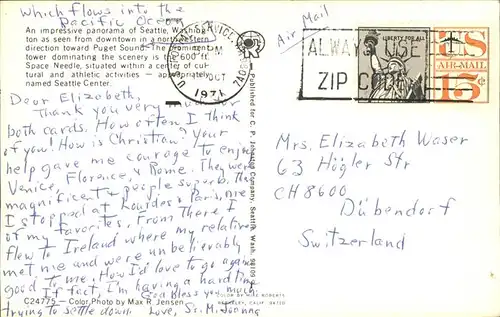 which flows into the
Pacific Ocean
An impressive panorama of Seattle, Washing-
ton as seen from downtown in a northwestern
direction toward Puget Sound. The prominent
tower dominating the scenery is the 600 ft.
Space Needle, situated within a center of cul-
tural and athletic activities — appropriately
named Seattle Center.
Dear Elizabeth,
Thank you very much for
both cards. How often I think
of you! How is Christian? Your
help gave me courage to enjoy
Venice, Florence, & Rome. They were
magnificent & people superb. Then
I stopped at Lourdes & Paris,
of my favorites. From there I
flew to Ireland where my relatives
met me and were unbelievably
good to me. How I'd love to go again
If fact, I'm having a hard time
trying to settle down. God bless you much.
Love, Sr. M.
C24775 — Color Photo by Max R. Jensen
COLOR BY MIKE ROBERTS
BERKELEY, CALIF. 94710
Published for C. P. Johnston Company, Seattle, Wash. 98105
Air Mail
PM
OCT
1971
ALWAYS USE
ZIP CODE
LIBERTY FOR ALL
US
AIR-MAIL
15¢
Mrs. Elizabeth Waser
63 Högler Str
CH 8600
Dübendorf
Switzerland